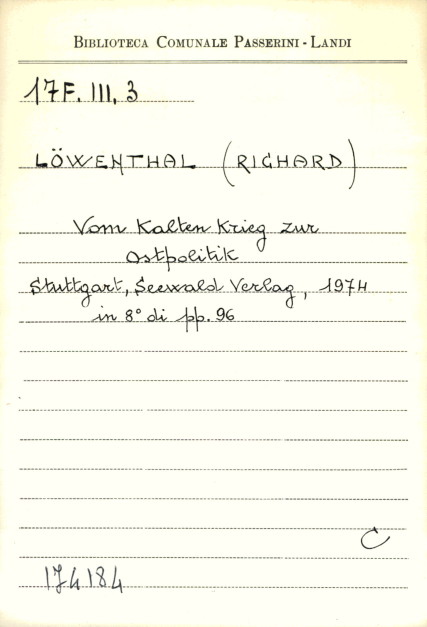 BIBLIOTECA COMUNALE PASSERINI - LANDI
17F. III, 3
LÖWENTHAL (RICHARD)
Vom Kalten Krieg zur
Ostpolitik
Stuttgart, Seewald Verlag, 1974
in 8° di pp. 96
C
174184